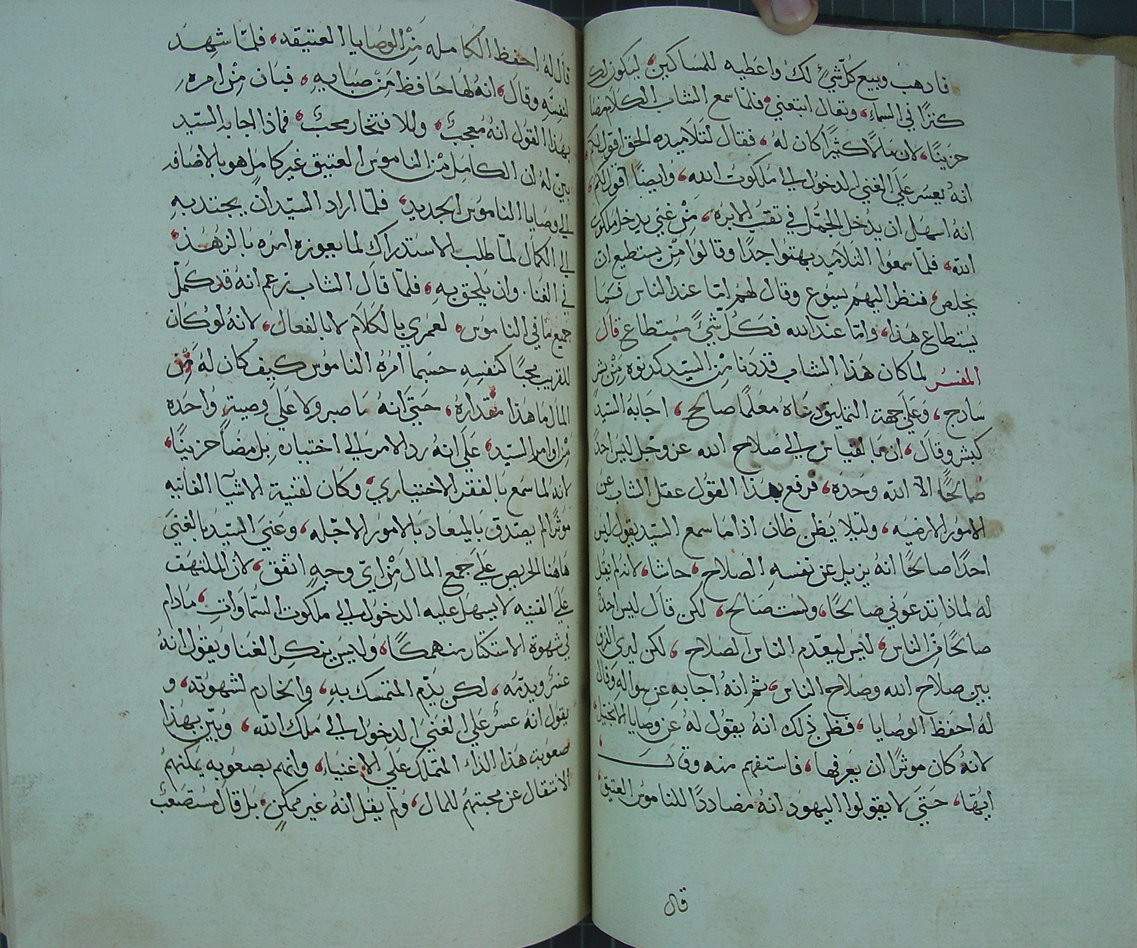 فاذهب وبيع كلّ شي لك واعطيه للمساكين، ليكون لك
كنزًا في السماء، وتعال اتبعني، فلما سمع الشاب الكلام مضا
حزينًا، لان مالًا كثيرًا كان له، فقال لتلاميذه الحق اقول لكم
انه يعسر على الغني الدخول الى ملكوت الله، وايضا اقول لكم
انه اسهل ان يدخل الجمل في ثقب الابره، من غني يدخل ملكوت
الله، فلما سمعوا التلاميذ بهتوا جدًا وقالوا من يستطيع ان
يخلص، فنظر اليهم يسوع وقال لهم امّا عند الناس فما
يستطاع هذا، وامّا عند الله فكل شيً مستطاع قال
المفسر لما كان هذا الشاب قد دنا من السيّد كدنوه من بشر
سادج، وعلى جهة التمليق دعاه معلمًا صالح، اجابه السيّد
كبشر وقال، ان ما القياس الى صلاح الله عز وجل ليس احدًا
صالحًا الّا الله وحده، فرفع بهذا القول عقل الشاب عن
الامور الارضيه، وليلا يظن ظان اذا ما سمع السيّد يقول ليس
احدًا صالحًا انه يزيل عن نفسه الصلاح، حاشا، لانه لم يقل
له لماذا تدعوني صالحًا، ولست صالح، لكن قال ليس احدًا
صالحًا من الناس، ليس ليعدم الناس الصلاح، لكن ليري الفرق
بين صلاح الله وصلاح الناس، ثم انه اجابه عن سواله وقال
له احفظ الوصايا، فظن ذلك انه يقول له عن وصايا الانجيل
لانه كان موثرًا ان يعرفها، فاستفهم منه وقال
ايها، حتى لا يقولوا اليهود انه مضاددًا للناموس العتيق،
قال
قال له احفظ الكامله من الوصايا العتيقه، فلمّا شهد
لنفسه وقال، انه لها حافظ من صبايه، فبان من امره
بهذا القول انه معجب، وللافتخار محب، فماذا اجابه السيّد
بيّن له ان الكامل من الناموس العتيق غير كامل هو بالاضافه
الى وصايا الناموس الجديد، فلمّا اراد السيّد ان يجتذبه
الى الكمال لمّا طلب الاستدراك لما يعوزه امره بالزهد
في الغنا، وان يلحق به، فلمّا قال الشاب زعم انه قد كمّل
جميع ما في الناموس، لعمري بالكلام لا بالفعال، لانه لو كان
للقريب محبًا كنفسه حسبما امره الناموس كيف كان له من
المال ما هذا مقداره، حتى انه ما صبر ولا على وصية واحده
من اوامر السيد، على انه رد الامر الى اختياره بل مضا حزينًا،
لانه لما سمع بالفقر الاختياري، وكان لقنية الاشيا الفانيه
موثرًا لم يصتدق بالميعاد بالامور الاجله، وعني السيّد بالغني
هاهنا الحريص على جمع المال من اي وجه اتفق، لان الملتهف
على القنيه لا يسهل عليه الدخول الى ملكوت السماوات، ما دام
في شهوة الاستكثار منهمكًا، وليس ينكر الغنا ويقول انه
عسرً ويذمّه، لكن يذّم المتمسك به، والخادم لشهوته، و
يقول انه عسرً على الغني الدخول الى ملك الله، وبيّن بهذا
صعوبة هذا الدا المتملك على الاغنياء، وانهم بصعوبه يمكنهم
الانتقال عن محبتهم للمال، ولم يقل انه غير ممكن، بل قال مستصعبً